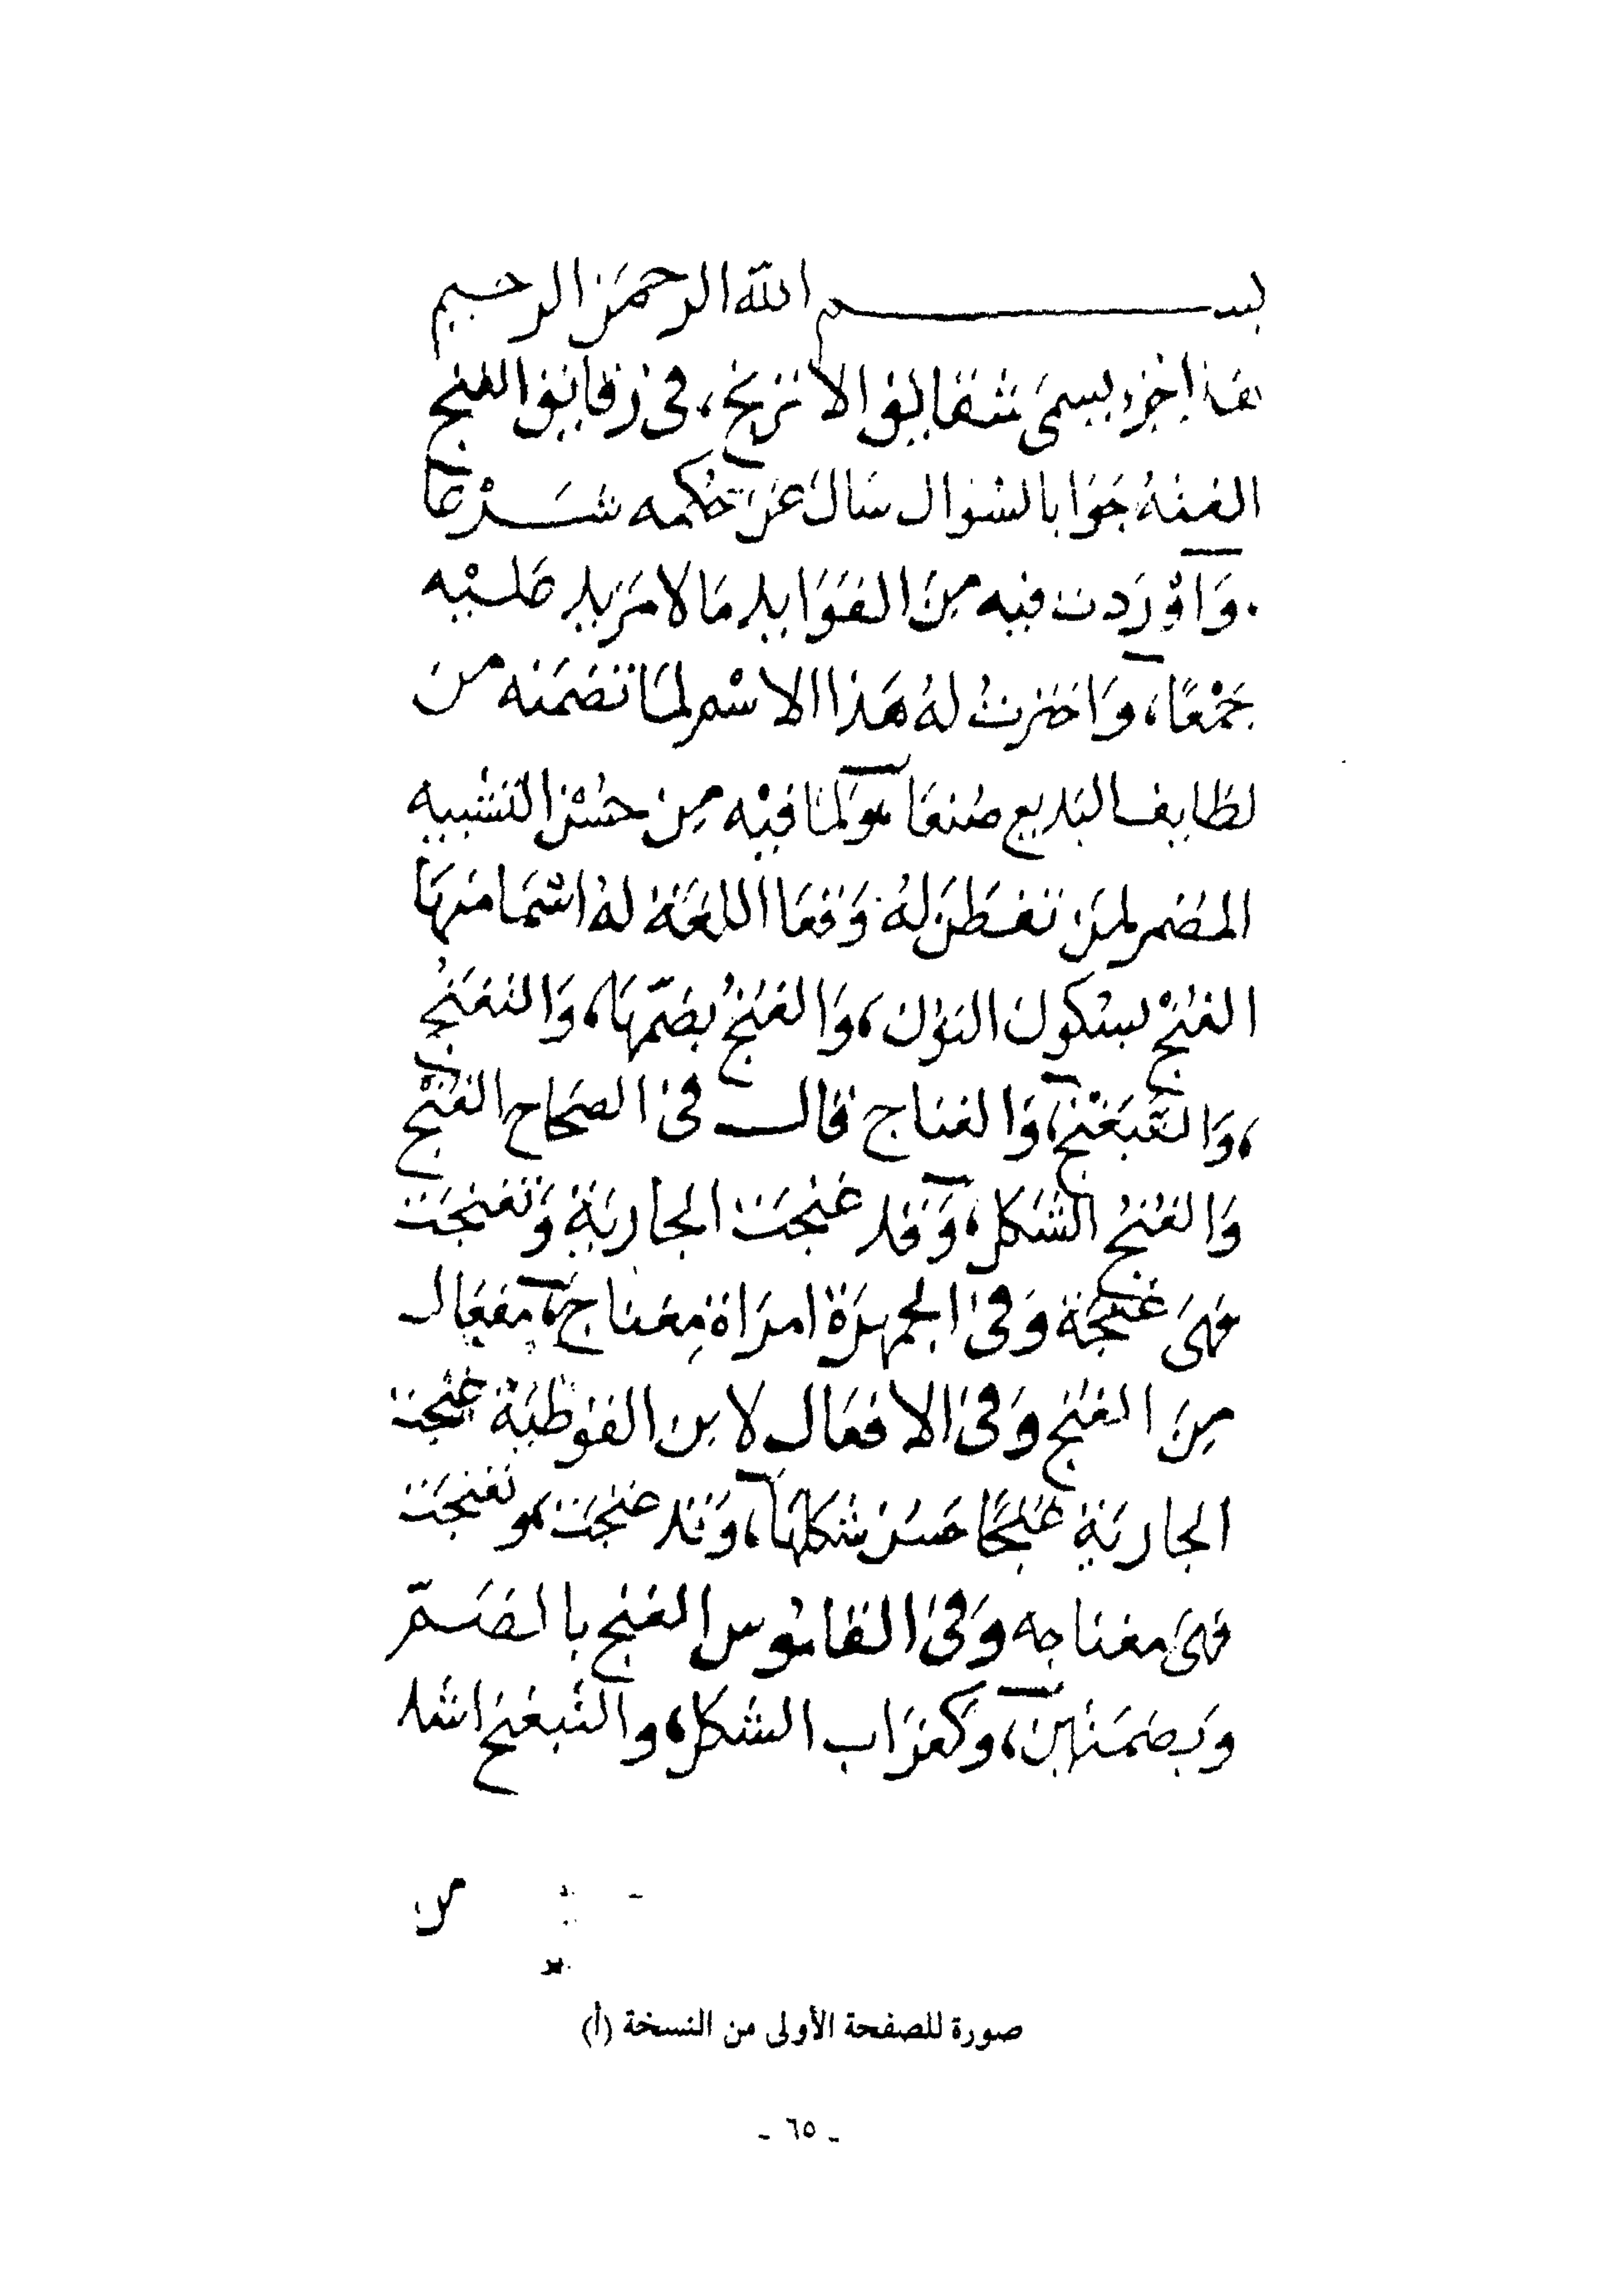 بســـــــم الله الرحمن الرحيم
هذا جزء يسمى شقايق الاترنج، فى رقايق الغنج
الفته جَوَابا لسُوال سَال عَن حكمه شَــرْعًا
وَاوْرَدت فيه مِنَ الفَوَايد مَا لا مَزيد عَليْه
جَمْعًا، وَاخترتُ لهُ هَذا الاسْم لمَا تضمَنه من
لطَايف البَديع صُنعًا، وَلمَا فيْه مِن حُسْن التشبيه
المضمر لمَن تفطَن لهُ وَقعَا اللغَة لهُ اسْمَا منهَا
الغنْج بسكون النوْن، وَالغنُجُ بضَمّهَا، وَالتغَنجُ
، وَالتَّبَغْنج، وَالغنَاج قالــ فى الصحَاح الغنْج
وَالغُنُجُ الشَكل، وَقد غنجَت الجاريَة وَتغنجَت
فهىَ غَنِجَة وَفى الجمهرَة امرَاة مِغناج، مِفعَال
مِنَ الغنْج وَفى الافعَال لابن القوطيَة غنِجَت
الجاريَة غنجًا حَسن شكلهَا، وَقد غنجَت، وتغنجَت
فهىَ مغناجه وَفى القامُوس الغنج بالضَمّ
وَبضمَتين، وَكغرَاب الشكل، والتبغنج اشد
من
صورة للصفحة الأولى من النسخة (أ)
ـ ٦٥ ـ